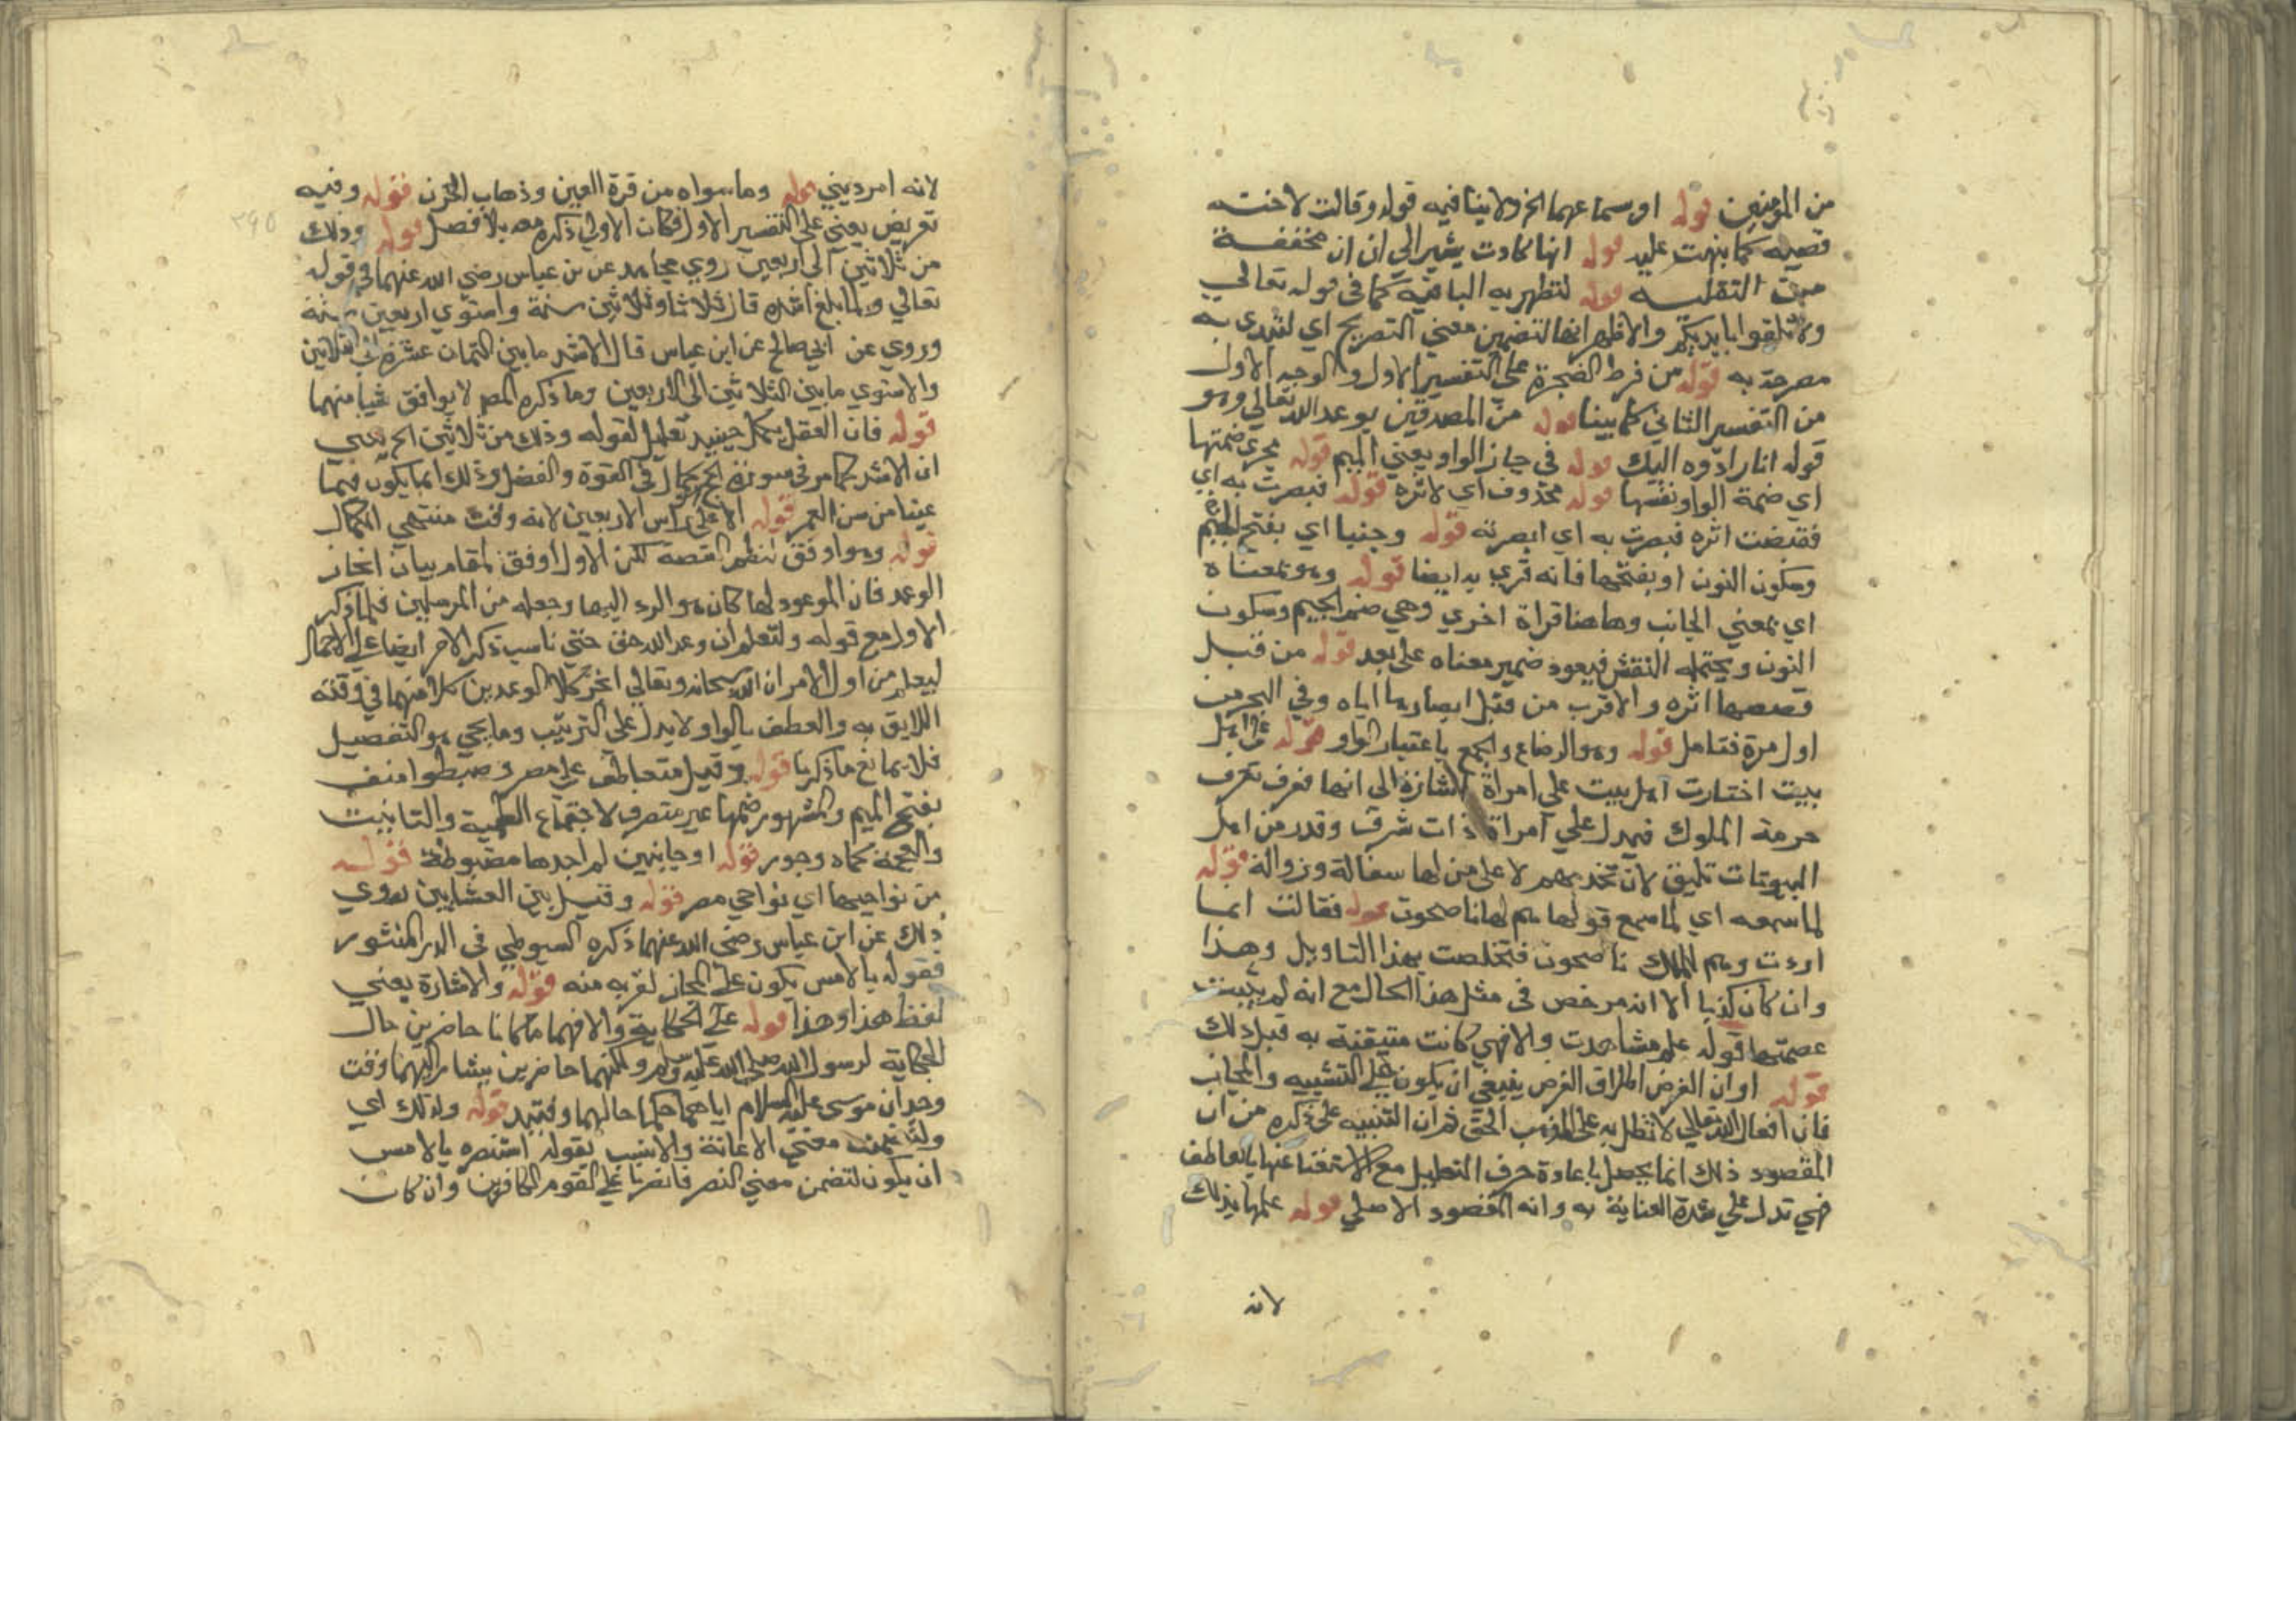 من المؤمنين قوله او سماعهما الخ ولا ينافيه قوله وقالت لاخته
قصيه كما بنهت عليه قوله انها كادت يشير الى ان ان مخففة
من الثقلية قوله لتظهر به البا فيه كما في قوله تعالي
ولا تلقوا بايديكم والاظهر انها لتضمين معني التصريح اي لتبدي به
مصرحة به قوله من فرط الضجرة على التفسير الاول والوجه الاول
من التفسير الثاني كما بينا قوله من المصدقين بوعد الله تعالي وهو
قوله انا رادوه اليك قوله في جاز الواو يعني الميم قوله مجري ضمتها
اي ضمة الواو نفسها قوله محذوف اي لاثره قوله فبصرت به اي
فقضت اثره فبصرت به اي ابصرته قوله وجنبا اي بفتح الجيم
وسكون النون او بفتحها فانه قري به ايضا قوله وهو بمعناه
اي بمعني الجانب وهاهنا قراة اخري وهي ضم الجيم وسكون
النون ويحتمله النقش فيعود ضمير معناه على بعد قوله من قبل
قصصها اثره والاقرب من قبل ابصارها اياه وفي البحر من
اول مرة فتامل قوله وهو الرضاع والجمع باعتبار المواد قوله على اهل
بيت اختارت اهل بيت علي امراة اشارة الى انها تعرف
حرمة الملوك فيدل علي امراة ذات شرف وقدر من اهل
البيوتات تليق لان تخدمهم لا على من لها سفالة ورذالة قوله
لما سمعه اي لما سمع قولها هم لها ناصحون قوله فقالت انما
اردت وهم للملك ناصحون فتخلصت بهذا التاويل وهذا
وان كان كذبا الا انه مرخص في مثل هذا الحال مع انه لم يثبت
عصمتها قوله علم مشاهدت والا فهي كانت متيقنة به قبل ذلك
قوله او ان الغرض اطلاق الغرض ينبغي ان يكون على التشبيه والمجاز
فان افعال الله تعالي لا تعلل به على المذهب الحق ثم ان التنبيه على ذكره من ان
المقصود ذلك انما يحصل باعادة حرف التعليل مع الاستغنا عنها بالعاطف
فهي تدل علي شدة العناية به وانه المقصود الاصلي قوله علمها بذلك
لانه
لانه امر ديني قوله وما سواه من قرة العين وذهاب الحزن قوله وفيه
تعريض يعني على التفسير الاول فكان الاولي ذكره معه بلا فصل قوله وذلك
من ثلاثين الى اربعين روي مجاهد عن بن عباس رضي الله عنهما في قوله
تعالي ولما بلغ اشده قال ثلاثا وثلاثين سنة واستوي اربعين سنة
وروي عن ابي صالح عن ابن عباس قال الاشد ما بين الثمان عشرة الى الثلاثين
والاستوي ما بين الثلاثين الى الاربعين وما ذكره المص لا يوافق شيا منهما
قوله فان العقل يكمل حينيذ تعليل لقوله وذلك من ثلاثين الخ يعني
ان الاشد كما مر في سورة الحج كمال في القوة والفضل وذلك انما يكون فيما
عينا من سن العمر قوله الا على راس الاربعين لانه وقت منتهي الكمال
قوله وهو اوفق لنظم القصة لكن الاول اوفق لمقام بيان انجاز
الوعد فان الموعود لها كان هو الرد اليها وجعله من المرسلين فلما ذكر
الاول مع قوله ولتعلم ان وعد الله حق حتي ناسب ذكر الاخر ايضا على الاجمال
ليعلم من اول الامر ان الله سبحانه وتعالي انجز كلا الوعدين كلا منهما في وقته
اللايق به والعطف بالواو لا يدل على الترتيب وما يجي هو التفصيل
فلا يمانع ما ذكرنا قوله وقيل منف على مصر وضبطوا منف
بفتح الميم والمشهور ضمها غير متصرف لاجتماع العلمية والتانيث
والعجمة كماه وجور قوله او حابين لم اجدها مضبوطة قوله
من نواحيها اي نواحي مصر قوله وقيل بين العشايين روي
ذلك عن ابن عباس رضي الله عنهما ذكره السيوطي في الدر المنثور
فقوله بالامس يكون على المجاز لقربه منه قوله والاشارة يعني
لفظ هذا وهذا قوله على الحكاية والا فهما ما كانا حاضرين حال
الحكاية لرسول الله صلى الله عليه وسلم ولكنهما حاضرين يشار اليهما وقت
وجدان موسى عليه السلام اياهما حكما حالهما وقتيد قوله ولذلك اي
ولتضمنه معني الاعانة والانسب بقوله استنصره بالامس
ان يكون لتضمن معني النصر فانصرنا على القوم الكافرين وان كان